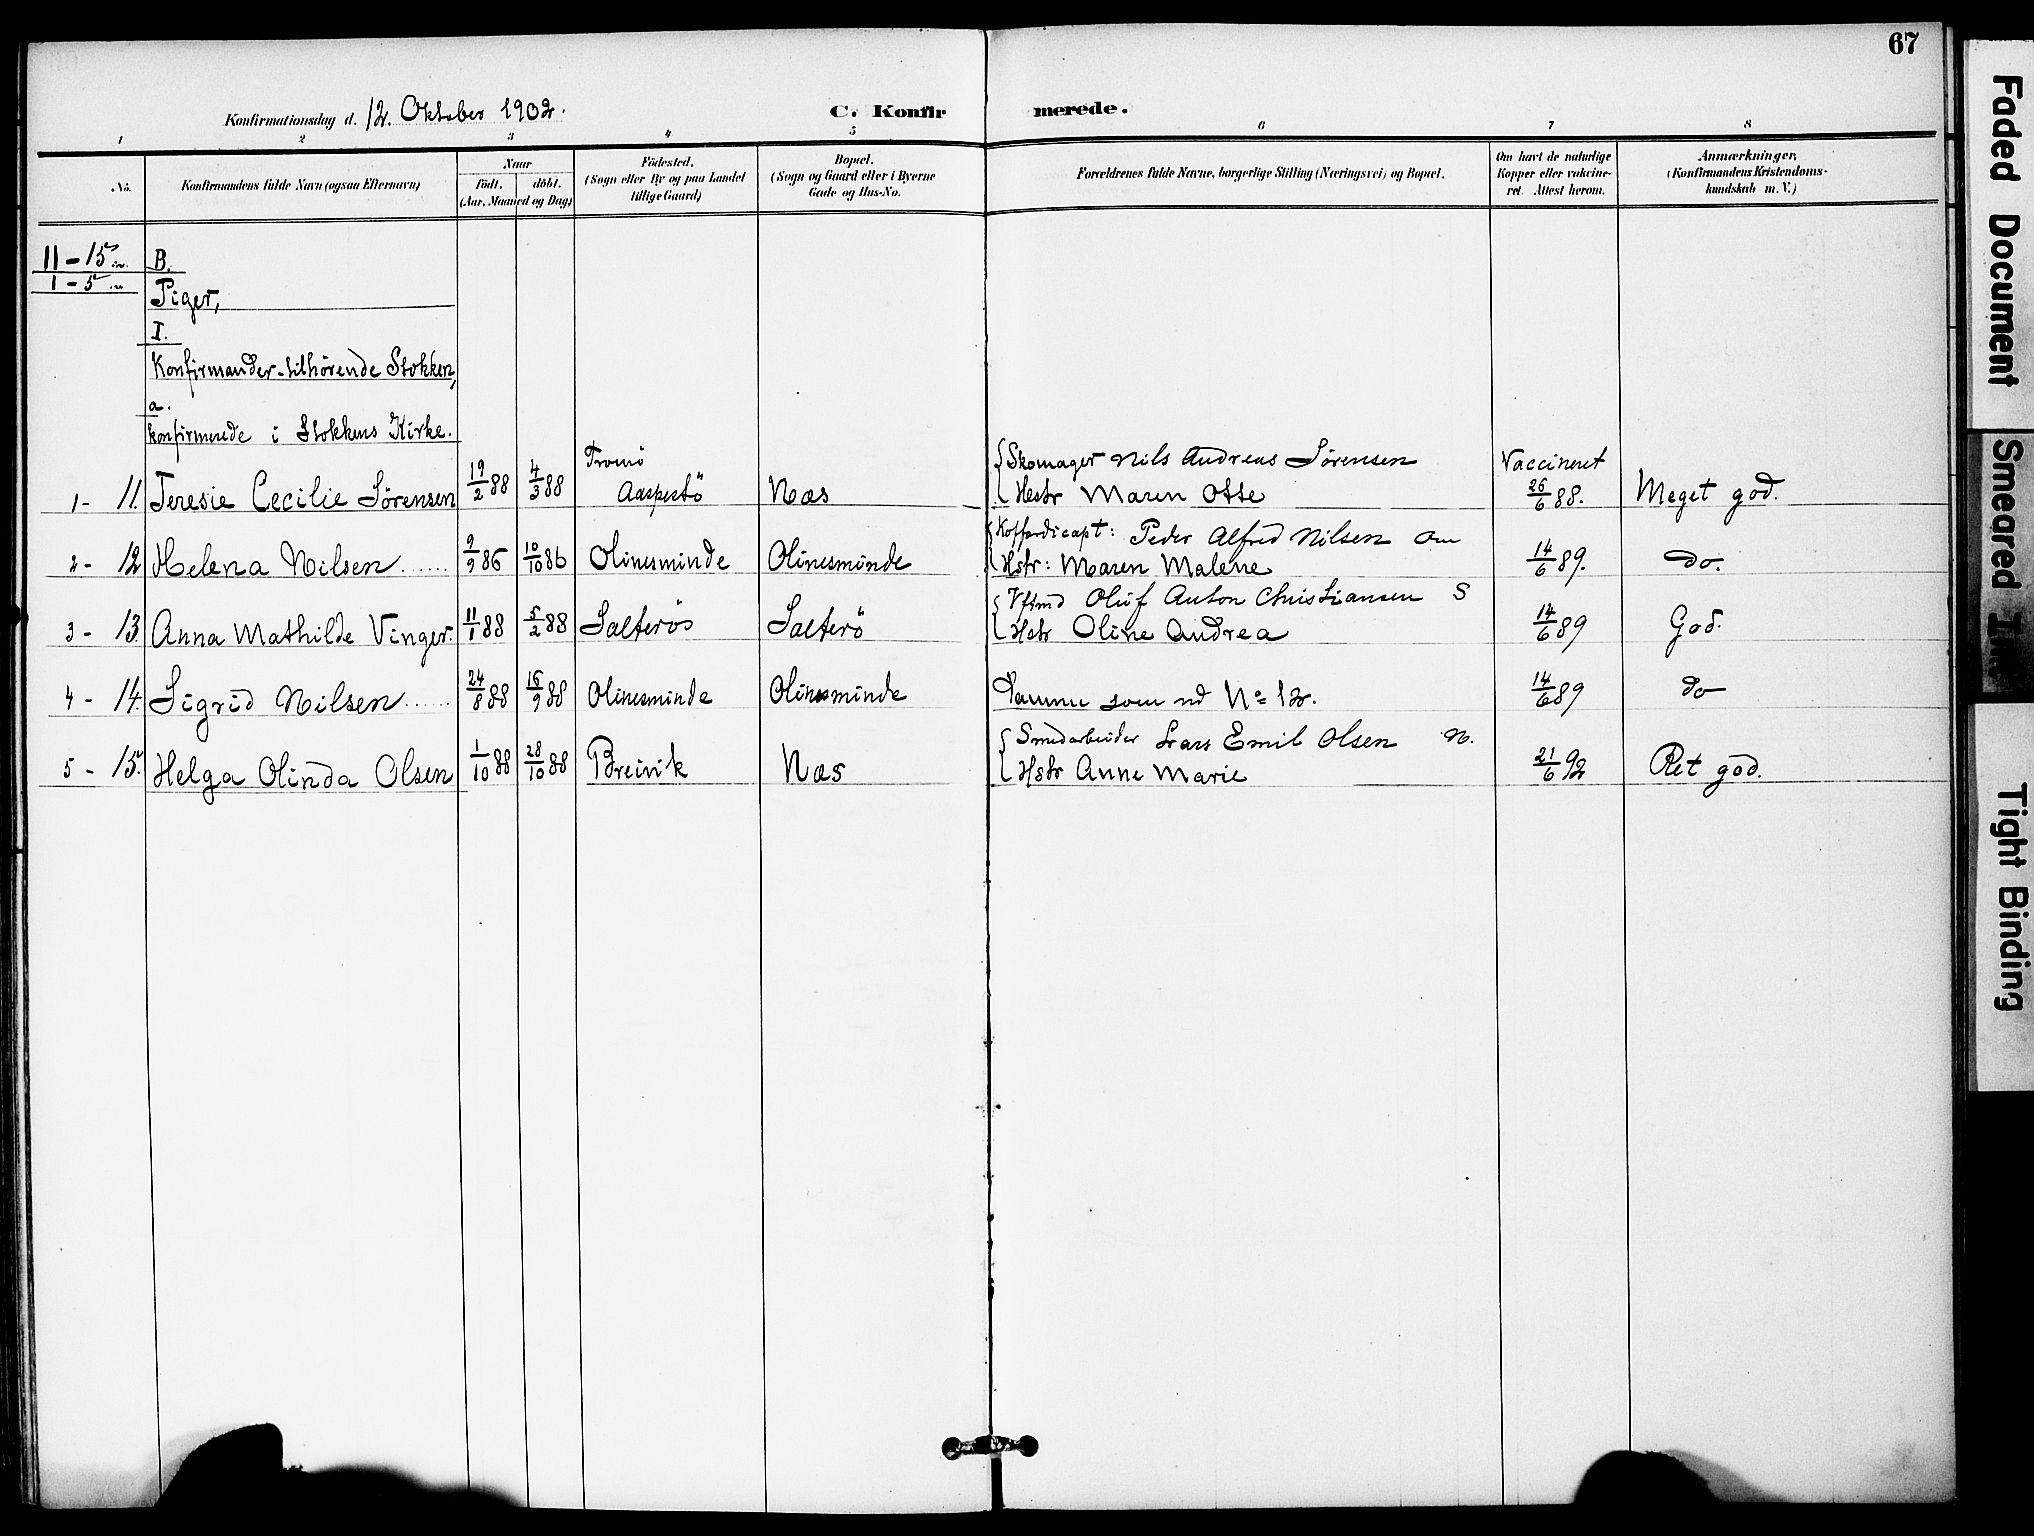 67
Konfirmationsdag d. 12. Oktober 1902.
C. Konfir merede.
1 2 3 4 5 6 7 8
No.
Konfirmandens fulde Navn (ogsaa Efternavn)
Naar
født. døbt.
(Aar, Maaned og Dag)
Fødested.
(Sogn eller By og paa Landet
tillige Gaard)
Bopæl.
(Sogn og Gaard eller i Byerne
Gade og Hus-No.
Forældrenes fulde Navne, borgerlige Stilling (Næringsvei) og Bopæl.
Om havt de naturlige
Kopper eller vakcine-
ret. Attest herom.
Anmærkninger.
(Konfirmandens Kristendoms-
kundskab m. V.)
11 - 15 B.
1 - 5
Piger,
I.
Konfirmander tilhørende Stokken,
a.
konfirmerede i Stokkens Kirke.
Tromö Skomager Nils Andreas Sörensen Vaccineret
1 - 11. Teresie Cecilie Sörensen 19/2 88 4/3 88 Næs Hstr Maren Otte 26/6 88. Meget god.
Koffardicapt: Peder Alfred Nilsen Om
2 - 12 Helena Nilsen 9/9 86 10/10 86 Olinesminde Olinesminde Hstr: Maren Malene 14/6 89. do.
Oluf Anton Christiansen S
3 - 13. Anna Mathilde Vinger. 11/1 88 5/2 88 Salterös Salterö Hstr Oline Andrea 14/6 89 God.
4 - 14. Sigrid Nilsen 24/8 88 16/9 88 Olinesminde Olinesminde Samme som ved No 12. 14/6 89 do
Smedarbeider Lars Emil Olsen N.
5 - 15. Helga Olinda Olsen 1/10 88 28/10 88 Breivik Næs Hstr Anne Marie 21/6 92 Ret god.
Faded Document
Smeared Ink
Tight Binding